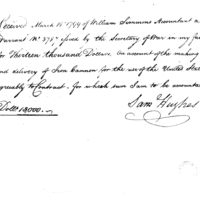 Received March 15th 1799 of William Simmons Accountant a
Warrant No. 375 issued by the Secretary of War in my fav
for Thirteen thousand Dollars. On account of the making
and delivery of Iron Cannon for the use of the United State
agreeably to Contract. for which sum I am to be accountab
Dolls. 13000.—
Sam Hughes